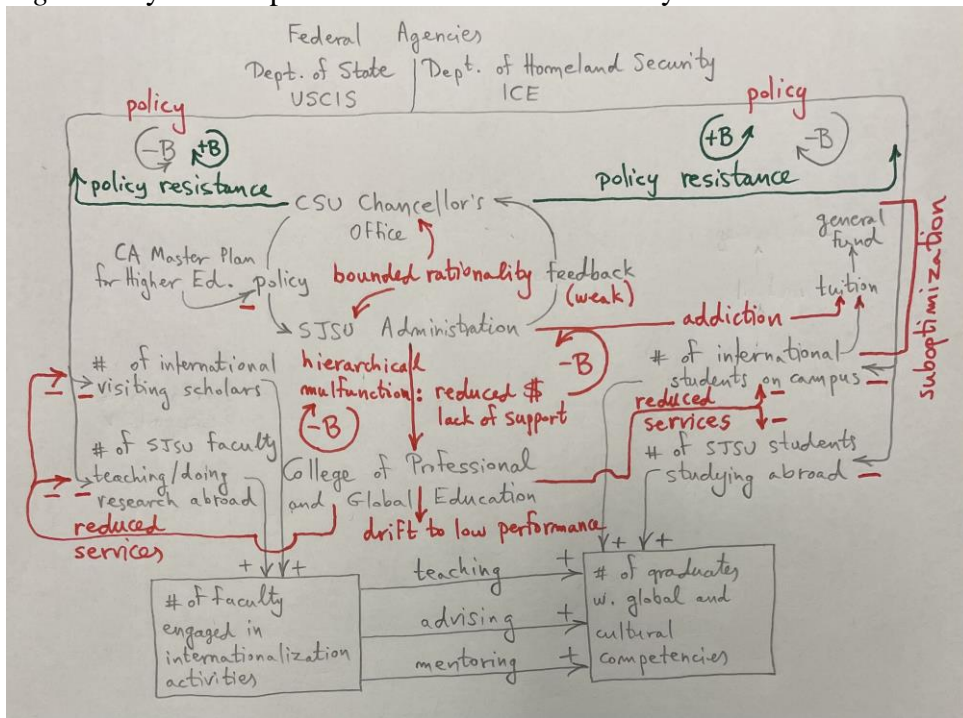 Federal Agencies
Dept. of State
USCIS
Dept. of Homeland Security
ICE
policy
policy
-B
+B
+B
-B
policy resistance
policy resistance
CSU Chancellor's
Office
general
fund
suboptimization
CA Master Plan
for Higher Ed.
policy
-
bounded rationality
feedback
(weak)
tuition
SJSU Administration
addiction
# of international
visiting scholars
- -
hierarchical
mulfunction: reduced $
lack of support
-B
-B
# of international
students on campus
-
reduced
services
-
-
# of SJSU faculty
teaching/doing
research abroad
- -
College of Professional
and Global Education
# of SJSU students
studying abroad
-
reduced
services
drift to low performance
+ +
+ +
# of faculty
engaged in
internationalization
activities
teaching +
advising +
mentoring +
# of graduates
w. global and
cultural
competencies